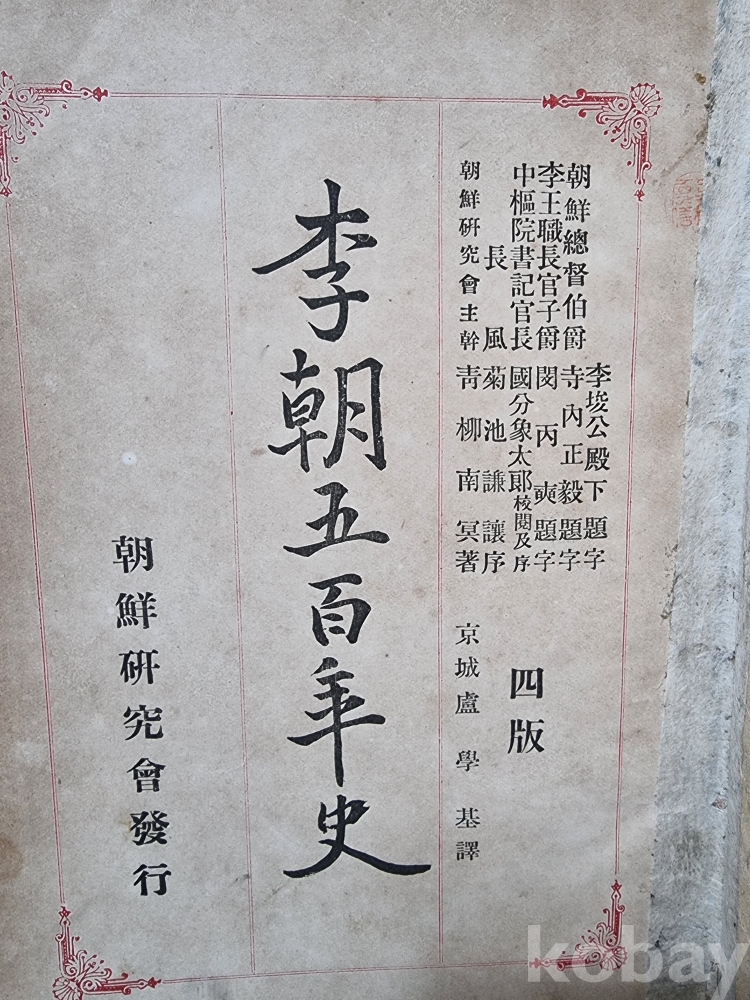 李埈公殿下題字
朝鮮總督伯爵 寺內正毅題字
李王職長官子爵 閔丙奭題字
中樞院書記官長 國分象太郞校閱及序
長風 菊池謙讓序
朝鮮硏究會主幹 靑柳南冥著
京城盧學基譯
四版
李朝五百年史
朝鮮硏究會發行
kobay